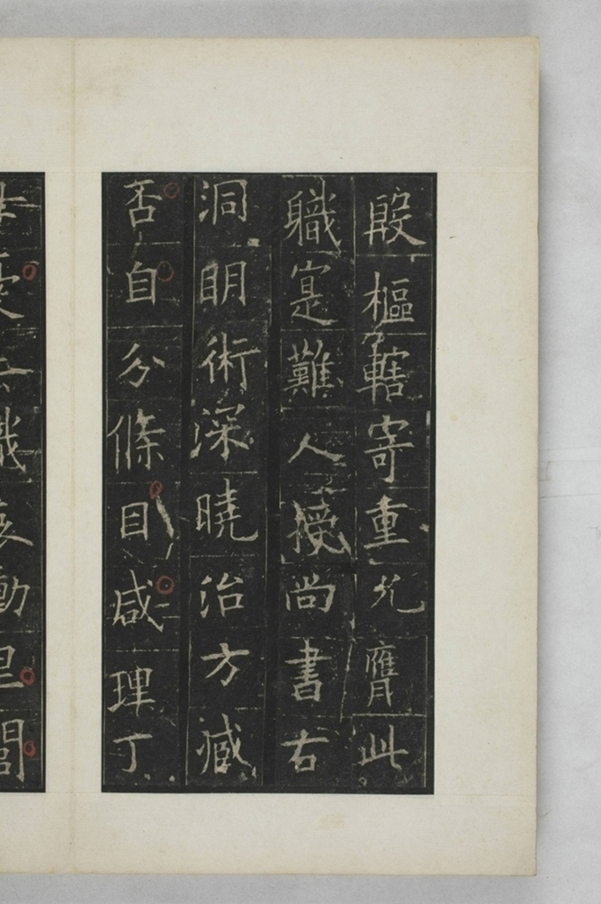 殷樞轄寄重允膺此
職寔難人授尚書右
洞明術深曉治方臧
否自分條目咸理丁